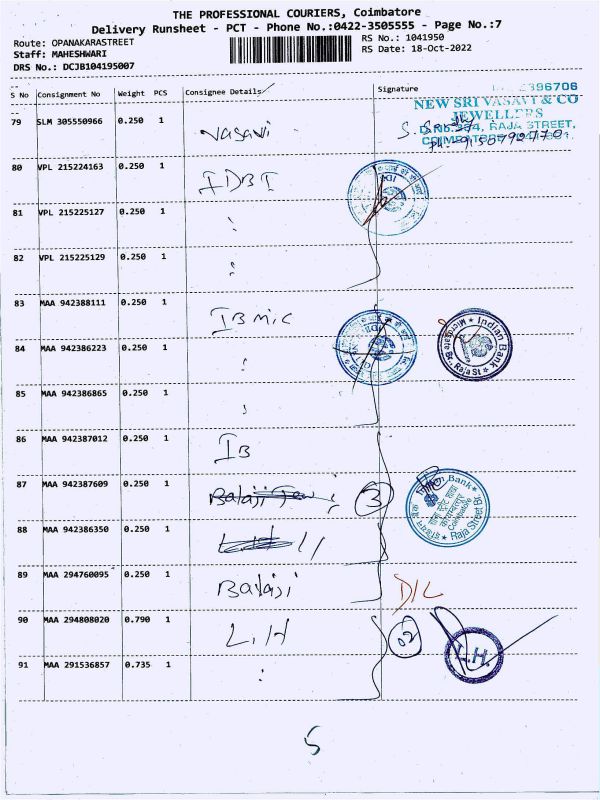 THE PROFESSIONAL COURIERS, Coimbatore
Delivery Runsheet - PCT - Phone No.:0422-3505555 - Page No.:7
Route: OPANAKARASTREET
RS No.: 1041950
Staff: MAHESHWARI
RS Date: 18-Oct-2022
DRS No.: DCJB104195007
S No Consignment No Weight PCS Consignee Details Signature
396706
NEW SRI VASAVI & CO
JEWELLERS
RAJA STREET,
79 SLM 305550966 0.250 1 Vasavi
80 VPL 215224163 0.250 1 IDBI
81 VPL 215225127 0.250 1
82 VPL 215225129 0.250 1
83 MAA 942388111 0.250 1 IB Mic
84 MAA 942386223 0.250 1
Indian Bank
Raja St
85 MAA 942386865 0.250 1
86 MAA 942387012 0.250 1 IB
87 MAA 942387609 0.250 1 Balaji 3
Indian Bank
Coimbatore
Raja Street Br
88 MAA 942386350 0.250 1 11
89 MAA 294760095 0.250 1 Balaji D/L
90 MAA 294808020 0.790 1 L.H 02
L.H.
91 MAA 291536857 0.735 1
5